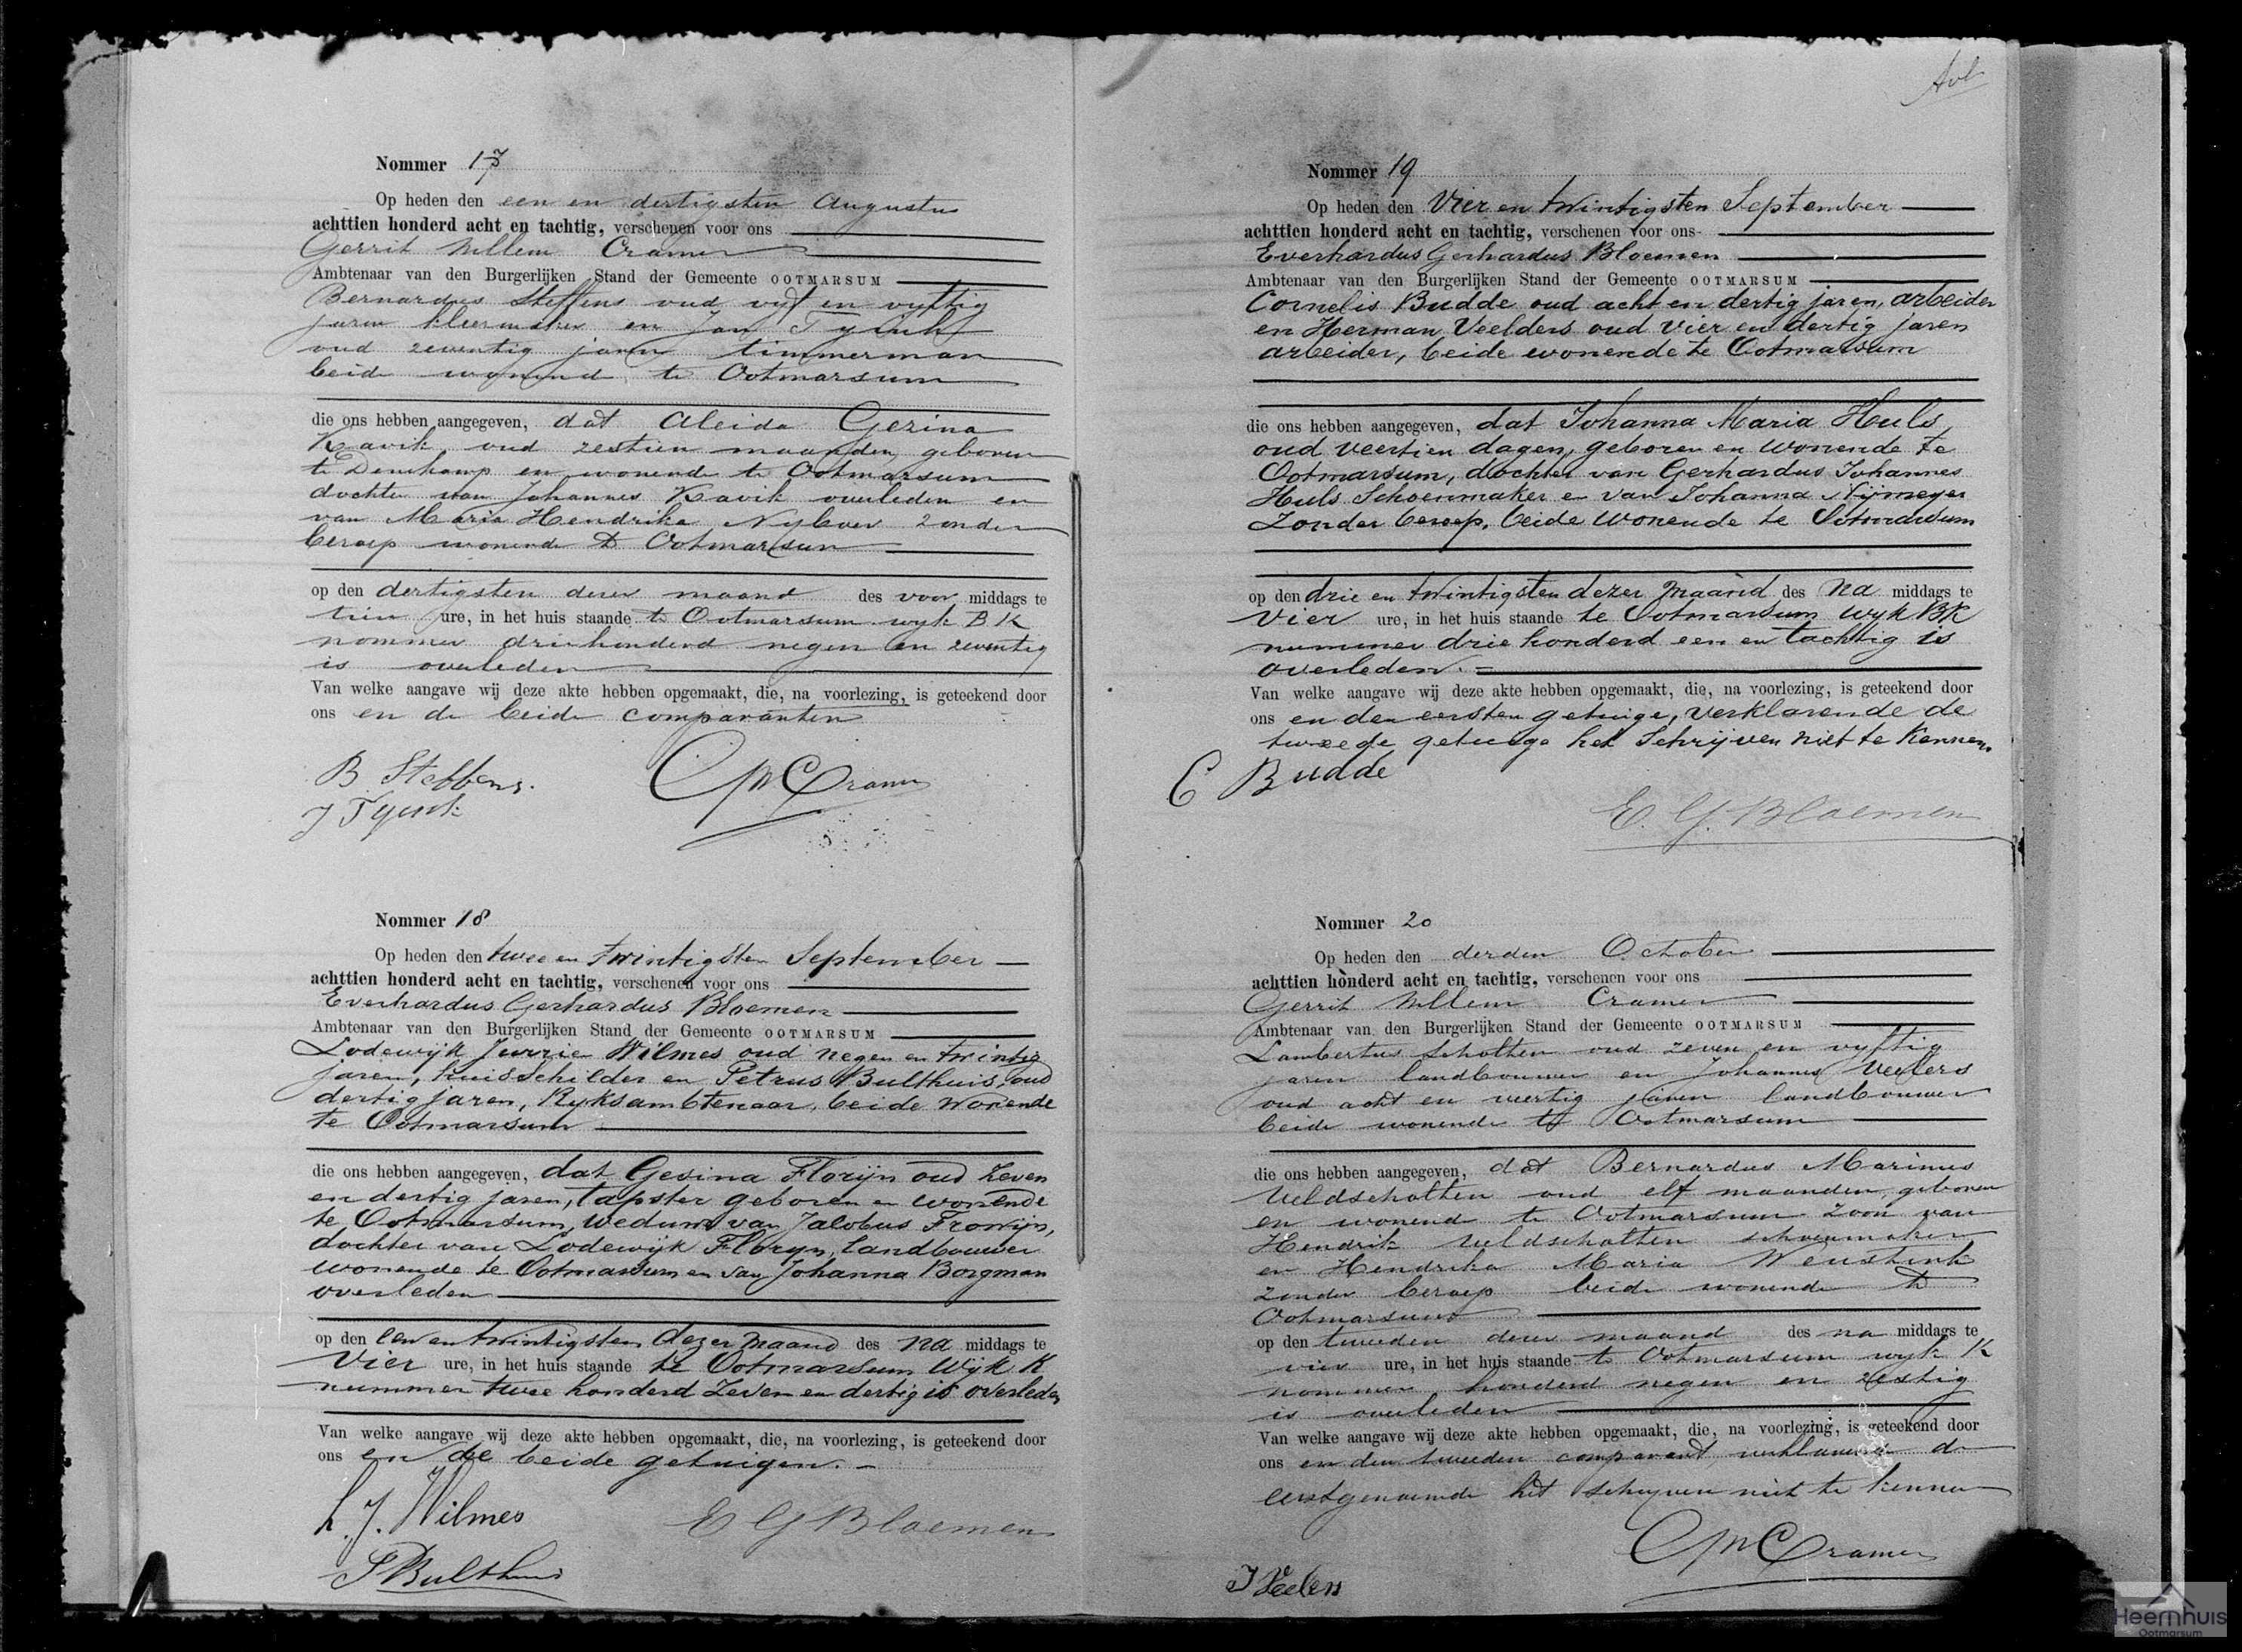 Nommer 17
Op heden den een en dertigsten Augustus
achttien honderd acht en tachtig, verschenen voor ons
Gerrit Willem Cramer
Ambtenaar van den Burgerlijken Stand der Gemeente OOTMARSUM
Bernardus Steffens oud vijf en vijftig
jaren kleermaker en Jan Tyink
oud zeventig jaren timmerman
beide wonend te Ootmarsum
die ons hebben aangegeven, dat Aleida Gezina
Kavik, oud zestien maanden geboren
te Denekamp en wonende te Ootmarsum
dochter van Johannes Kavik overleden en
van Maria Hendrika Nyboer zonder
beroep wonende te Ootmarsum
op den dertigsten dezer maand des voor middags te
tien ure, in het huis staande te Ootmarsum wyk BK
nommer driehonderd negen en zeventig
is overleden
Van welke aangave wij deze akte hebben opgemaakt, die, na voorlezing, is geteekend door
ons en de beide comparanten
B. Steffens.
J Tyink
GWCramer
Nommer 18
Op heden den twee en twintigsten September
achttien honderd acht en tachtig, verschenen voor ons
Everhardus Gerhardus Bloemen
Ambtenaar van den Burgerlijken Stand der Gemeente OOTMARSUM
Lodewijk Jurrie Wilmes oud negen en twintig
jaren, huisschilder en Petrus Bulthuis, oud
dertig jaren, Ryksambtenaar, beide wonende
te Ootmarsum
die ons hebben aangegeven, dat Gesina Florijn oud zeven
en dertig jaren, tapster geboren en wonende
te Ootmarsum, weduwe van Jacobus Frowijn,
dochter van Lodewijk Floryn, landbouwer
wonende te Ootmarsum en van Johanna Borgman
overleden
op den een en twintigsten dezer maand des na middags te
vier ure, in het huis staande te Ootmarsum Wijk K
nummer twee honderd zeven en dertig is overleden
Van welke aangave wij deze akte hebben opgemaakt, die, na voorlezing, is geteekend door
ons en de beide getuigen.
L. J. Wilmes
E G Bloemen
P Bulthuis
Nommer 19
Op heden den Vier en twintigsten September
achttien honderd acht en tachtig, verschenen voor ons
Everhardus Gerhardus Bloemen
Ambtenaar van den Burgerlijken Stand der Gemeente OOTMARSUM
Cornelis Budde oud acht en dertig jaren, arbeider
en Herman Veelders oud vier en dertig jaren
arbeider, beide wonende te Ootmarsum
die ons hebben aangegeven, dat Johanna Maria Huls,
oud veertien dagen, geboren en wonende te
Ootmarsum, dochter van Gerhardus Johannes
Huls Schoenmaker en van Johanna Nijmeyer
Zonder beroep, beide wonende te Ootmarsum
op den drie en twintigsten dezer maand des na middags te
Vier ure, in het huis staande te Ootmarsum wyk BK
nummer drie honderd een en tachtig is
overleden.
Van welke aangave wij deze akte hebben opgemaakt, die, na voorlezing, is geteekend door
ons en den eersten getuige, verklarende de
tweede getuige het Schrijven niet te kennen.
C Budde
E. G. Bloemen
Nommer 20
Op heden den derden October
achttien honderd acht en tachtig, verschenen voor ons
Gerrit Willem Cramer
Ambtenaar van den Burgerlijken Stand der Gemeente OOTMARSUM
Lambertus Scholten oud zeven en vyftig
jaren landbouwer en Johannes Veelers
oud acht en veertig jaren landbouwer
beide wonende te Ootmarsum
die ons hebben aangegeven, dat Bernardus Marinus
Veldscholten oud elf maanden, geboren
en wonend te Ootmarsum zoon van
Hendrik Veldscholten schoenmaker
en Hendrika Maria Weustink
zonder beroep beide wonende te
Ootmarsum
op den tweeden dezer maand des na middags te
vier ure, in het huis staande te Ootmarsum wyk K
nommer honderd negen en zestig
is overleden
Van welke aangave wij deze akte hebben opgemaakt, die, na voorlezing, is geteekend door
ons en den tweeden comparant, verklarende de
eerstgenoemde het schryven niet te kennen
GWCramer
J Veelers
Heernhuis
Ootmarsum